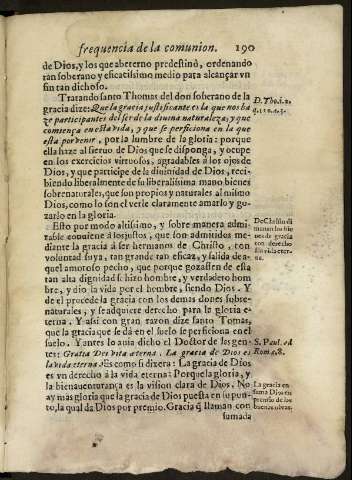 frequencia de la comunion. 190
de Dios, y los que abeterno predestinò, ordenando
tan soberano y eficatissimo medio para alcançar vn
fin tan dichoso.
Tratando santo Thomas del don soberano de la
gracia dize: Que la gracia justificante es la que nos ha
ze participantes del ser de la diuina naturaleza, y que
comiença en esta vida, y que se perficiona en la que
està por venir, por la lumbre de la gloria: porque
ella haze al sieruo de Dios que se disponga, y ocupe
en los exercicios virtuosos, agradables à los ojos de
Dios, y que participe de la diuinidad de Dios, reci-
biendo liberalmente de su liberalissima mano bienes
sobrenaturales, que son propios y naturales al mismo
Dios, como lo son el verle claramente amarlo y go-
zarlo en la gloria.
Esto por modo altissimo, y sobre manera admi-
rable conuiene à los justos, que son admitidos me-
diante la gracia à ser hermanos de Christo, con
voluntad suya, tan grande tan eficaz, y salida de a-
quel amoroso pecho, que porque gozassen de esta
tan alta dignidad se hizo hombre, y verdadero hom
bre, y dio la vida por el hombre, siendo Dios. Y
de el procede la gracia con los demas dones sobre-
naturales, y se adquiere derecho para la gloria e-
terna. Y assi con gran razon dize santo Tomas,
que la gracia que se dà en el suelo se perficiona en el
suelo. Y antes lo auia dicho el Doctor de las gen-
tes: Gratia Dei vita eterna. La gracia de Dios es
la vida eterna. Es como si dixera: La gracia de Dios
es vn derecho à la vida eterna: Porque la gloria, y
la bienauenturança es la vision clara de Dios. No
ay mas gloria que la gracia de Dios puesta en su pun-
to, la qual da Dios por premio. Gracia q̃ llaman con
sumada
D. Tho. 1. 2.
De Christo di
manan los bie
nes de gracia
con derecho
à la vida eter-
na.
S. Paul. ad
Rom. c. 8.
La gracia en
suma Dios en
premio de las
buenas obras.